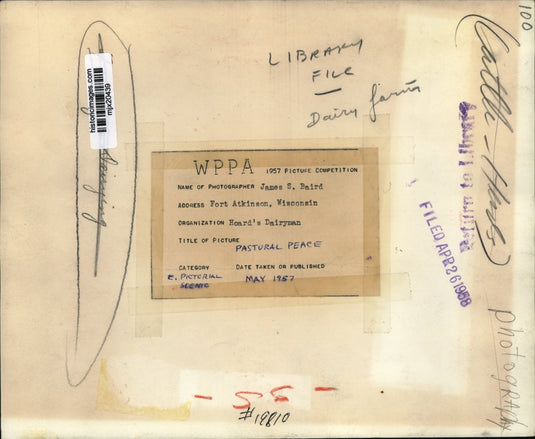 100
LIBRARY
FILE
Dairy farms
historicimages.com
mjx20439
Cattle -
Return to Library
FILED APR 26 1968
WPPA 1957 PICTURE COMPETITION
NAME OF PHOTOGRAPHER James S. Baird
ADDRESS Fort Atkinson, Wisconsin
ORGANIZATION Hoard's Dairyman
TITLE OF PICTURE
PASTURAL PEACE
CATEGORY DATE TAKEN OR PUBLISHED
E. PICTORIAL MAY 1957
SCENIC
photograph
- 55 -
#19810